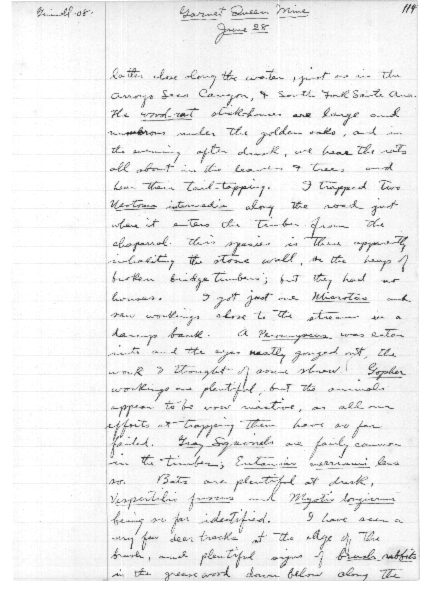 Grinnell-08.
Garnet Queen Mine
119
June 28
latter close along the water, just as in the
Arroyo Seco Canyon, & South Fork Santa Ana.
The wood-rat stickhouses are large and
numerous under the golden oaks, and in
the evening after dusk, we hear the rats
all about in the leaves & trees and
hear their tail-tapping. I trapped two
Neotoma intermedia along the road just
where it enters the timber from the
chaparral. This species is there apparently
inhabiting the stone wall, or the heap of
broken bridge timbers; but they had no
houses. I got just one Microtus and
saw workings close to the stream in a
damp bank. A Peromyscus was eaten
into and the eyes neatly gouged out, the
work I thought of some shrew. Gopher
workings are plentiful, but the animals
appear to be now inactive, as all our
efforts at trapping them have so far
failed. Gray Squirrels are fairly common
in the timber; Eutamias merriami less
so. Bats are plentiful at dusk,
Vespertilio fuscus and Myotis
being so far identified. I have seen a
very few deer tracks at the edge of the
brush, and plentiful signs of brush rabbits
in the greasewood down below along the